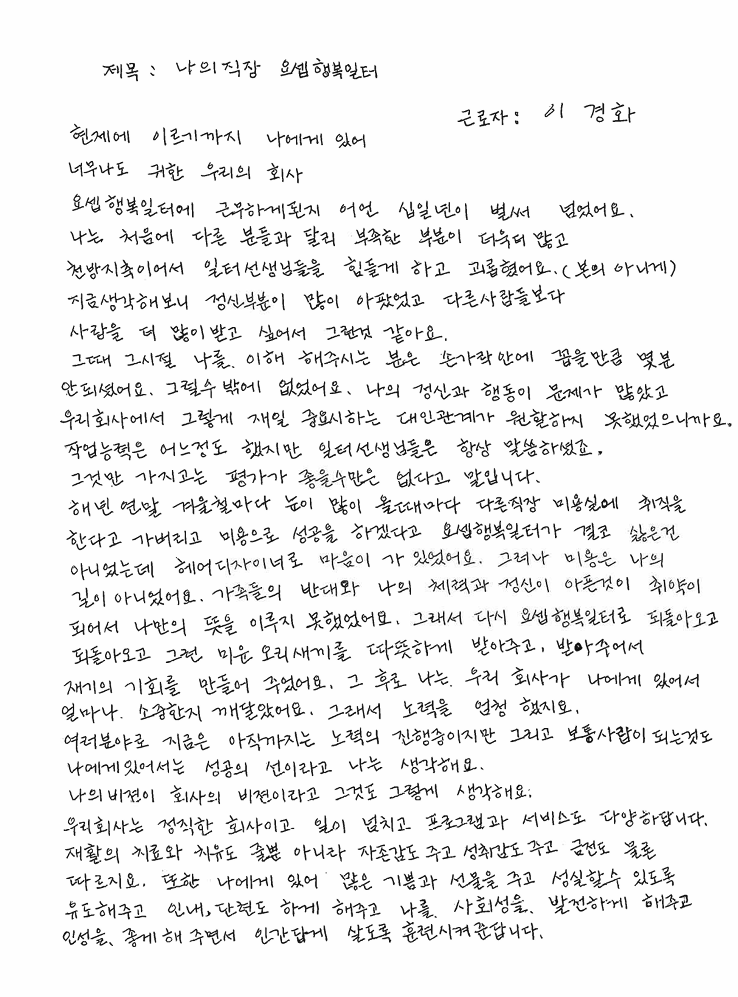 제목 : 나의직장 요셉행복일터
근로자 : 이 경화
현제에 이르기까지 나에게 있어
너무나도 귀한 우리의 회사
요셉행복일터에 근무하게된지 어언 십일년이 벌써 넘었어요.
나는 처음에 다른 분들과 달리 부족한 부분이 더욱더 많고
천방지축이어서 일터선생님들을 힘들게 하고 괴롭혔어요.(본의 아니게)
지금생각해보니 정신부분이 많이 아팠었고 다른사람들보다
사랑을 더 많이받고 싶어서 그런것 같아요.
그때 그시절 나를 이해 해주시는 분은 손가락안에 꼽을만큼 몇분
안되셨어요. 그럴수 밖에 없었어요. 나의 정신과 행동이 문제가 많았고
우리회사에서 그렇게 재일 중요시하는 대인관계가 원할하지 못했었으니까요.
작업능력은 어느정도 했지만 일터선생님들은 항상 말씀하셨죠.
그것만 가지고는 평가가 좋을수만은 없다고 말입니다.
해년 연말 겨울철마다 눈이 많이 올때마다 다른직장 미용실에 취직을
한다고 가버리고 미용으로 성공을 하겠다고 요셉행복일터가 결코 싫은건
아니었는데 헤어디자이너로 마음이 가 있었어요. 그러나 미용은 나의
길이 아니었어요. 가족들의 반대와 나의 체력과 정신이 아픈것이 취약이
되어서 나만의 뜻을 이루지 못했었어요. 그래서 다시 요셉행복일터로 되돌아오고
되돌아오고 그런 미운 오리새끼를 따뜻하게 받아주고, 받아주어서
재기의 기회를 만들어 주었어요. 그 후로 나는 우리 회사가 나에게 있어서
얼마나 소중한지 깨달았어요. 그래서 노력을 엄청 했지요.
여러분야로 지금은 아직까지는 노력의 진행중이지만 그리고 보통사람이 되는것도
나에게있어서는 성공의 선이라고 나는 생각해요.
나의비젼이 회사의 비젼이라고 그것도 그렇게 생각해요.
우리회사는 정직한 회사이고 일이 넘치고 프로그램과 서비스도 다양하답니다.
재활의 치료와 치유도 줄뿐 아니라 자존감도 주고 성취감도 주고 금전도 물론
따르지요. 또한 나에게 있어 많은 기쁨과 선물을 주고 성실할수 있도록
유도해주고 인내,단련도 하게 해주고 나를 사회성을 발전하게 해주고
인성을 좋게 해 주면서 인간답게 살도록 훈련시켜준답니다.